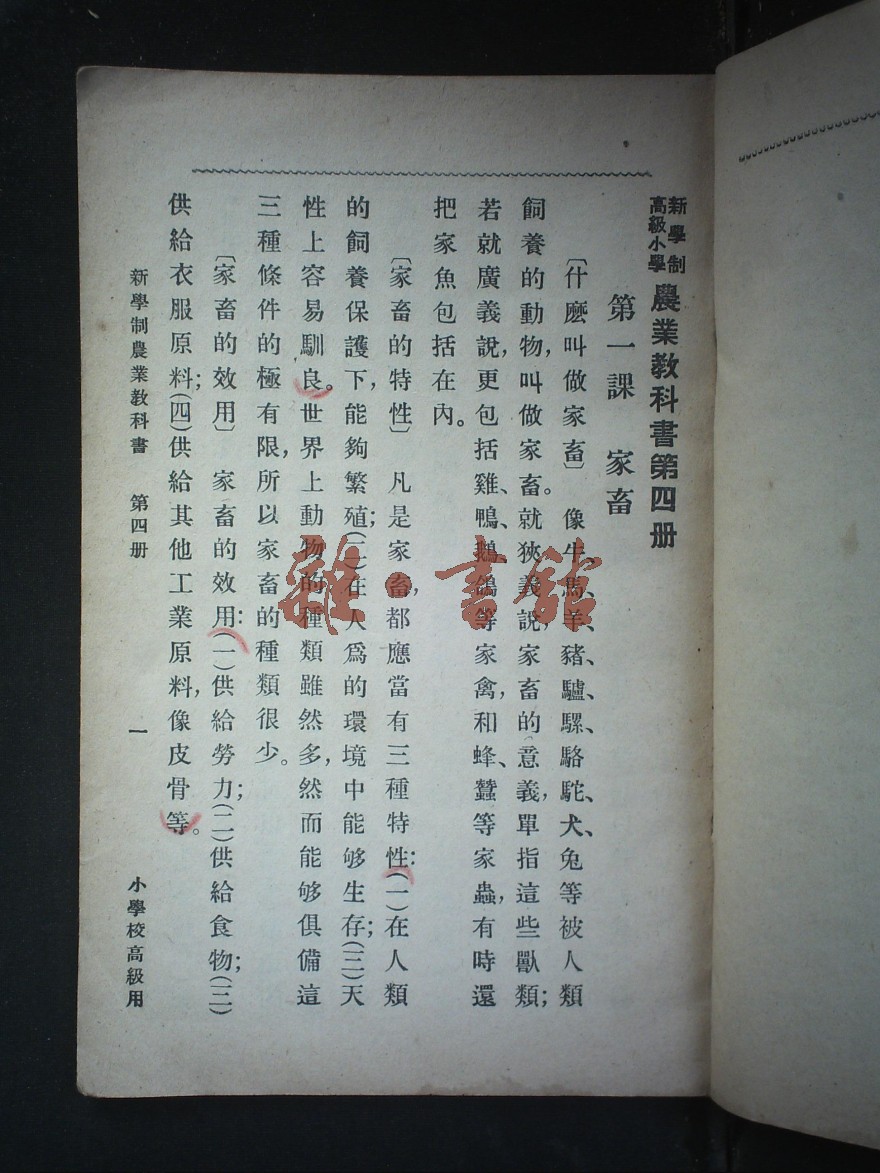 新學制
高級小學
農業教科書第四册
第一課　家畜
〔什麼叫做家畜〕　像牛、馬、羊、豬、驢、騾、駱駝、犬、兔等被人類
飼養的動物，叫做家畜。就狹義說，家畜的意義，單指這些獸類；
若就廣義說，更包括雞、鴨、鵝、鴿等家禽，和蜂、蠶等家蟲，有時還
把家魚包括在內。
〔家畜的特性〕　凡是家畜，都應當有三種特性：(一)在人類
的飼養保護下，能夠繁殖；(二)在人爲的環境中能够生存；(三)天
性上容易馴良。世界上動物的種類雖然多，然而能够俱備這
三種條件的極有限，所以家畜的種類很少。
〔家畜的效用〕　家畜的效用：(一)供給勞力；(二)供給食物；(三)
供給衣服原料；(四)供給其他工業原料，像皮骨等。
新學制農業教科書　第四册　一　小學校高級用
雜·書館